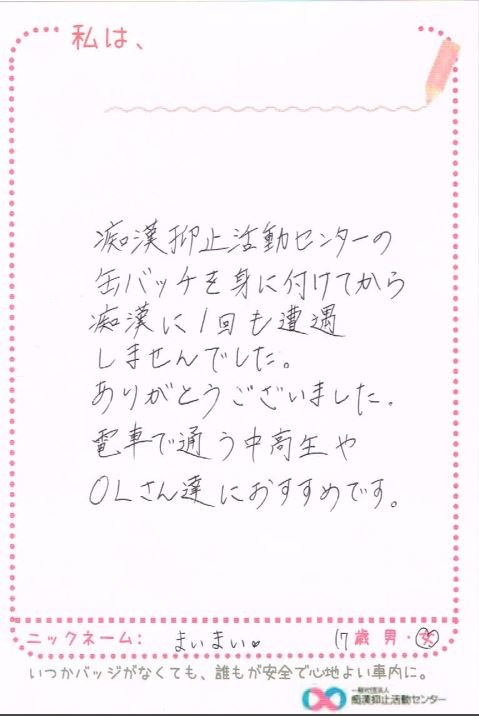 私は、
痴漢抑止活動センターの
缶バッチを身に付けてから
痴漢に1回も遭遇
しませんでした。
ありがとうございました.
電車で通う中高生や
OLさん達におすすめです。
ニックネーム： まいまい♥ 17歳 男・女
いつかバッジがなくても、誰もが安全で心地よい車内に。
一般社団法人
痴漢抑止活動センター